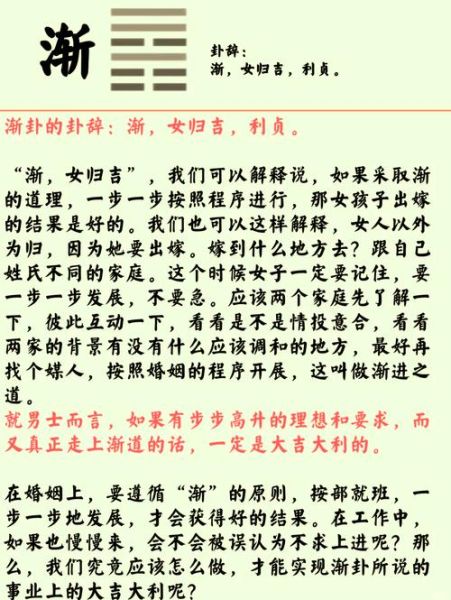 渐
卦辞：
渐，女归吉，利贞。
渐卦的卦辞：渐，女归吉，利贞。
“渐，女归吉”，我们可以解释说，如果采取渐
的道理，一步一步按照程序进行，那女孩子出嫁
的结果是好的。我们也可以这样解释，女人以外
为归，因为她要出嫁。嫁到什么地方去？跟自己
姓氏不同的家庭。这个时候女子一定要记住，要
一步一步发展，不要急。应该两个家庭先了解一
下，彼此互动一下，看看是不是情投意合，看看
两家的背景有没有什么应该调和的地方，最好再
找个媒人，按照婚姻的程序开展，这叫做渐进之
道。
就男士而言，如果有步步高升的理想和要求，而
又真正走上渐道的话，一定是大吉大利的。
在婚姻上，要遵循“渐”的原则，按部就班，一
步一步地发展，才会获得好的结果。在工作中，
如果也慢慢来，会不会被误认为不求上进呢？那
么，我们究竟应该怎么做，才能实现渐卦所说的
事业上的大吉大利呢？